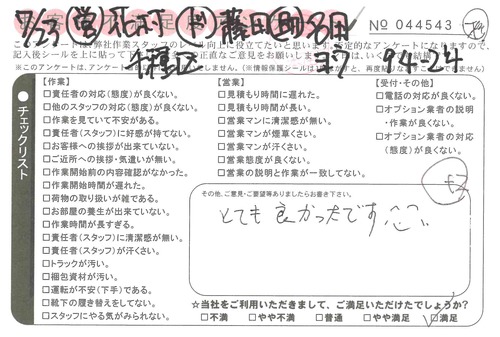 7/23 ㊂ 北村 藤田 名用
Nº 044543
このアンケートは弊社作業スタッフのレベル向上に役立てたいと思います。否定的なアンケートになりますので、
記入後シールを上に貼って
正直なご意見をお願いします
94-24
※このアンケートは、アンケート
(※情報保護シールは
再度貼り
チェックリスト
【作業】
□責任者の対応(態度)が良くない。
□他のスタッフの対応(態度)が良くない。
□作業を見ていて不安がある。
□責任者(スタッフ)に好感が持てない。
□お客様への挨拶が出来ていない。
□ご近所への挨拶・気遣いが無い。
□作業開始前の内容確認がなかった。
□作業開始時間が遅れた。
□荷物の取り扱いが雑である。
□お部屋の養生が出来ていない。
□作業時間が長すぎる。
□責任者(スタッフ)に清潔感が無い。
□責任者(スタッフ)が汗くさい。
□トラックが汚い。
□梱包資材が汚い。
□運転が不安(下手)である。
□靴下の履き替えをしてない。
□スタッフにやる気がみられない。
【営業】
□見積もり時間に遅れた。
□見積もり時間が長い。
□営業マンに清潔感が無い。
□営業マンが煙草くさい。
□営業マンが汗くさい。
□営業態度が良くない。
□営業の説明と作業が一致してない。
【受付・その他】
□電話の対応が良くない。
□オプション業者の説明
・作業が良くない。
□オプション業者の対応
(態度)が良くない。
その他、ご意見・ご要望等ありましたらお書き下さい。
とても良かったです
☆当社をご利用いただきまして、ご満足いただけたでしょうか?
□不満 □やや不満 □普通 □やや満足 □満足